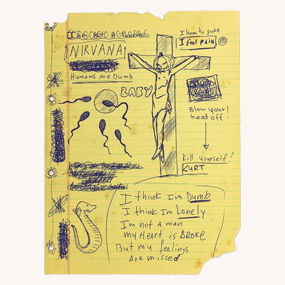 NIRVANA
Humans are Dumb
BABY
I have to puke
I feel PAIN
Blow your
head off.
Kill yourself!
KURT
I think I'm Dumb
I think I'm Lonely
I'm not a man
my Heart is BROKE
But my feelings
Are missed